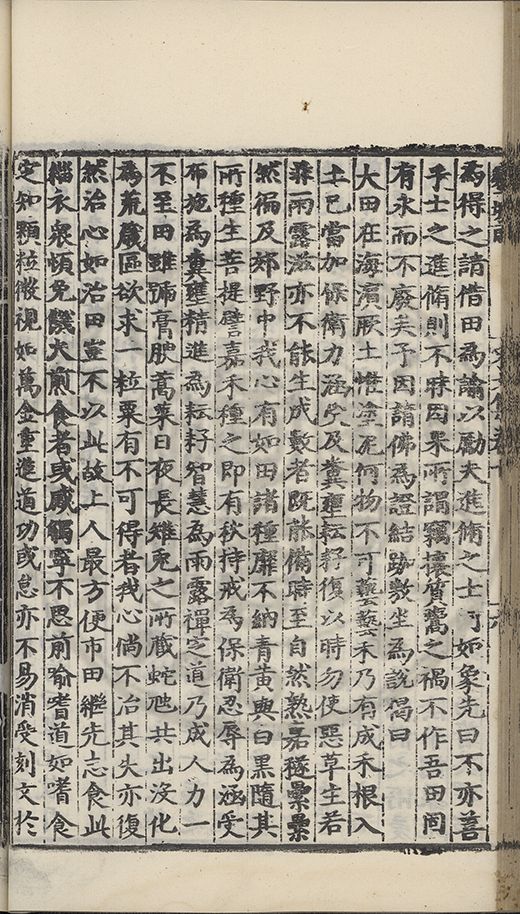 為得之請借田為諭以勵夫進脩之士可如象先曰不亦善
乎士之進脩則不時因果所謂竊攘質鬻之禍不作吾田固
有永而不廢矣予因請佛為證結跏敷坐為說偈曰
大田在海濱厥土惟塗泥何物不可藝藝禾乃有成禾根入
土已當加保衛力涵受及糞壅耘耔復以時勿使惡草生若
非雨露滋亦不能生成數者既能備時至自然熟嘉穟纍纍
然徧及郊野中我心有如田諸種靡不納青黄與白黒隨其
所種生菩提譬嘉禾種之即有秋持戒為保衛忍辱為涵受
布施為糞壅精進為耘耔智慧為雨露禪定道乃成人力一
不至田雖號膏腴蒿萊日夜長雉兎之所蔵蛇虺共出没化
為荒蔵區欲求一粒粟有不可得者我心倘不治其失亦復
然治心如治田豈不以此故上人最方便市田繼先志食此
緇衣衆頓免饑火煎食者或感觸寧不思前喻嗜道如嗜食
定知顆粒微視如萬金重進道功或怠亦不易消受刻文於